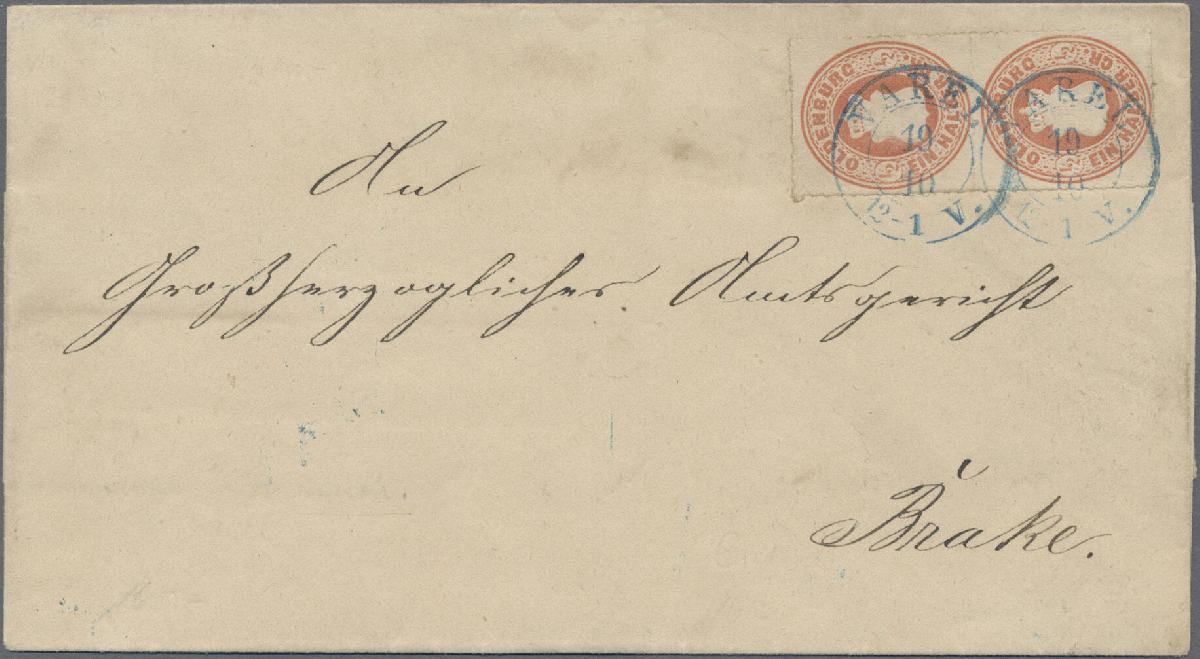 OLDENBURG EIN HALBER GR.
OLDENBURG EIN HALBER GR.
VAREL
19
10
12-1 V.
VAREL
19
10
12-1 V.
An
Großherzogliches Amtsgericht
Brake.